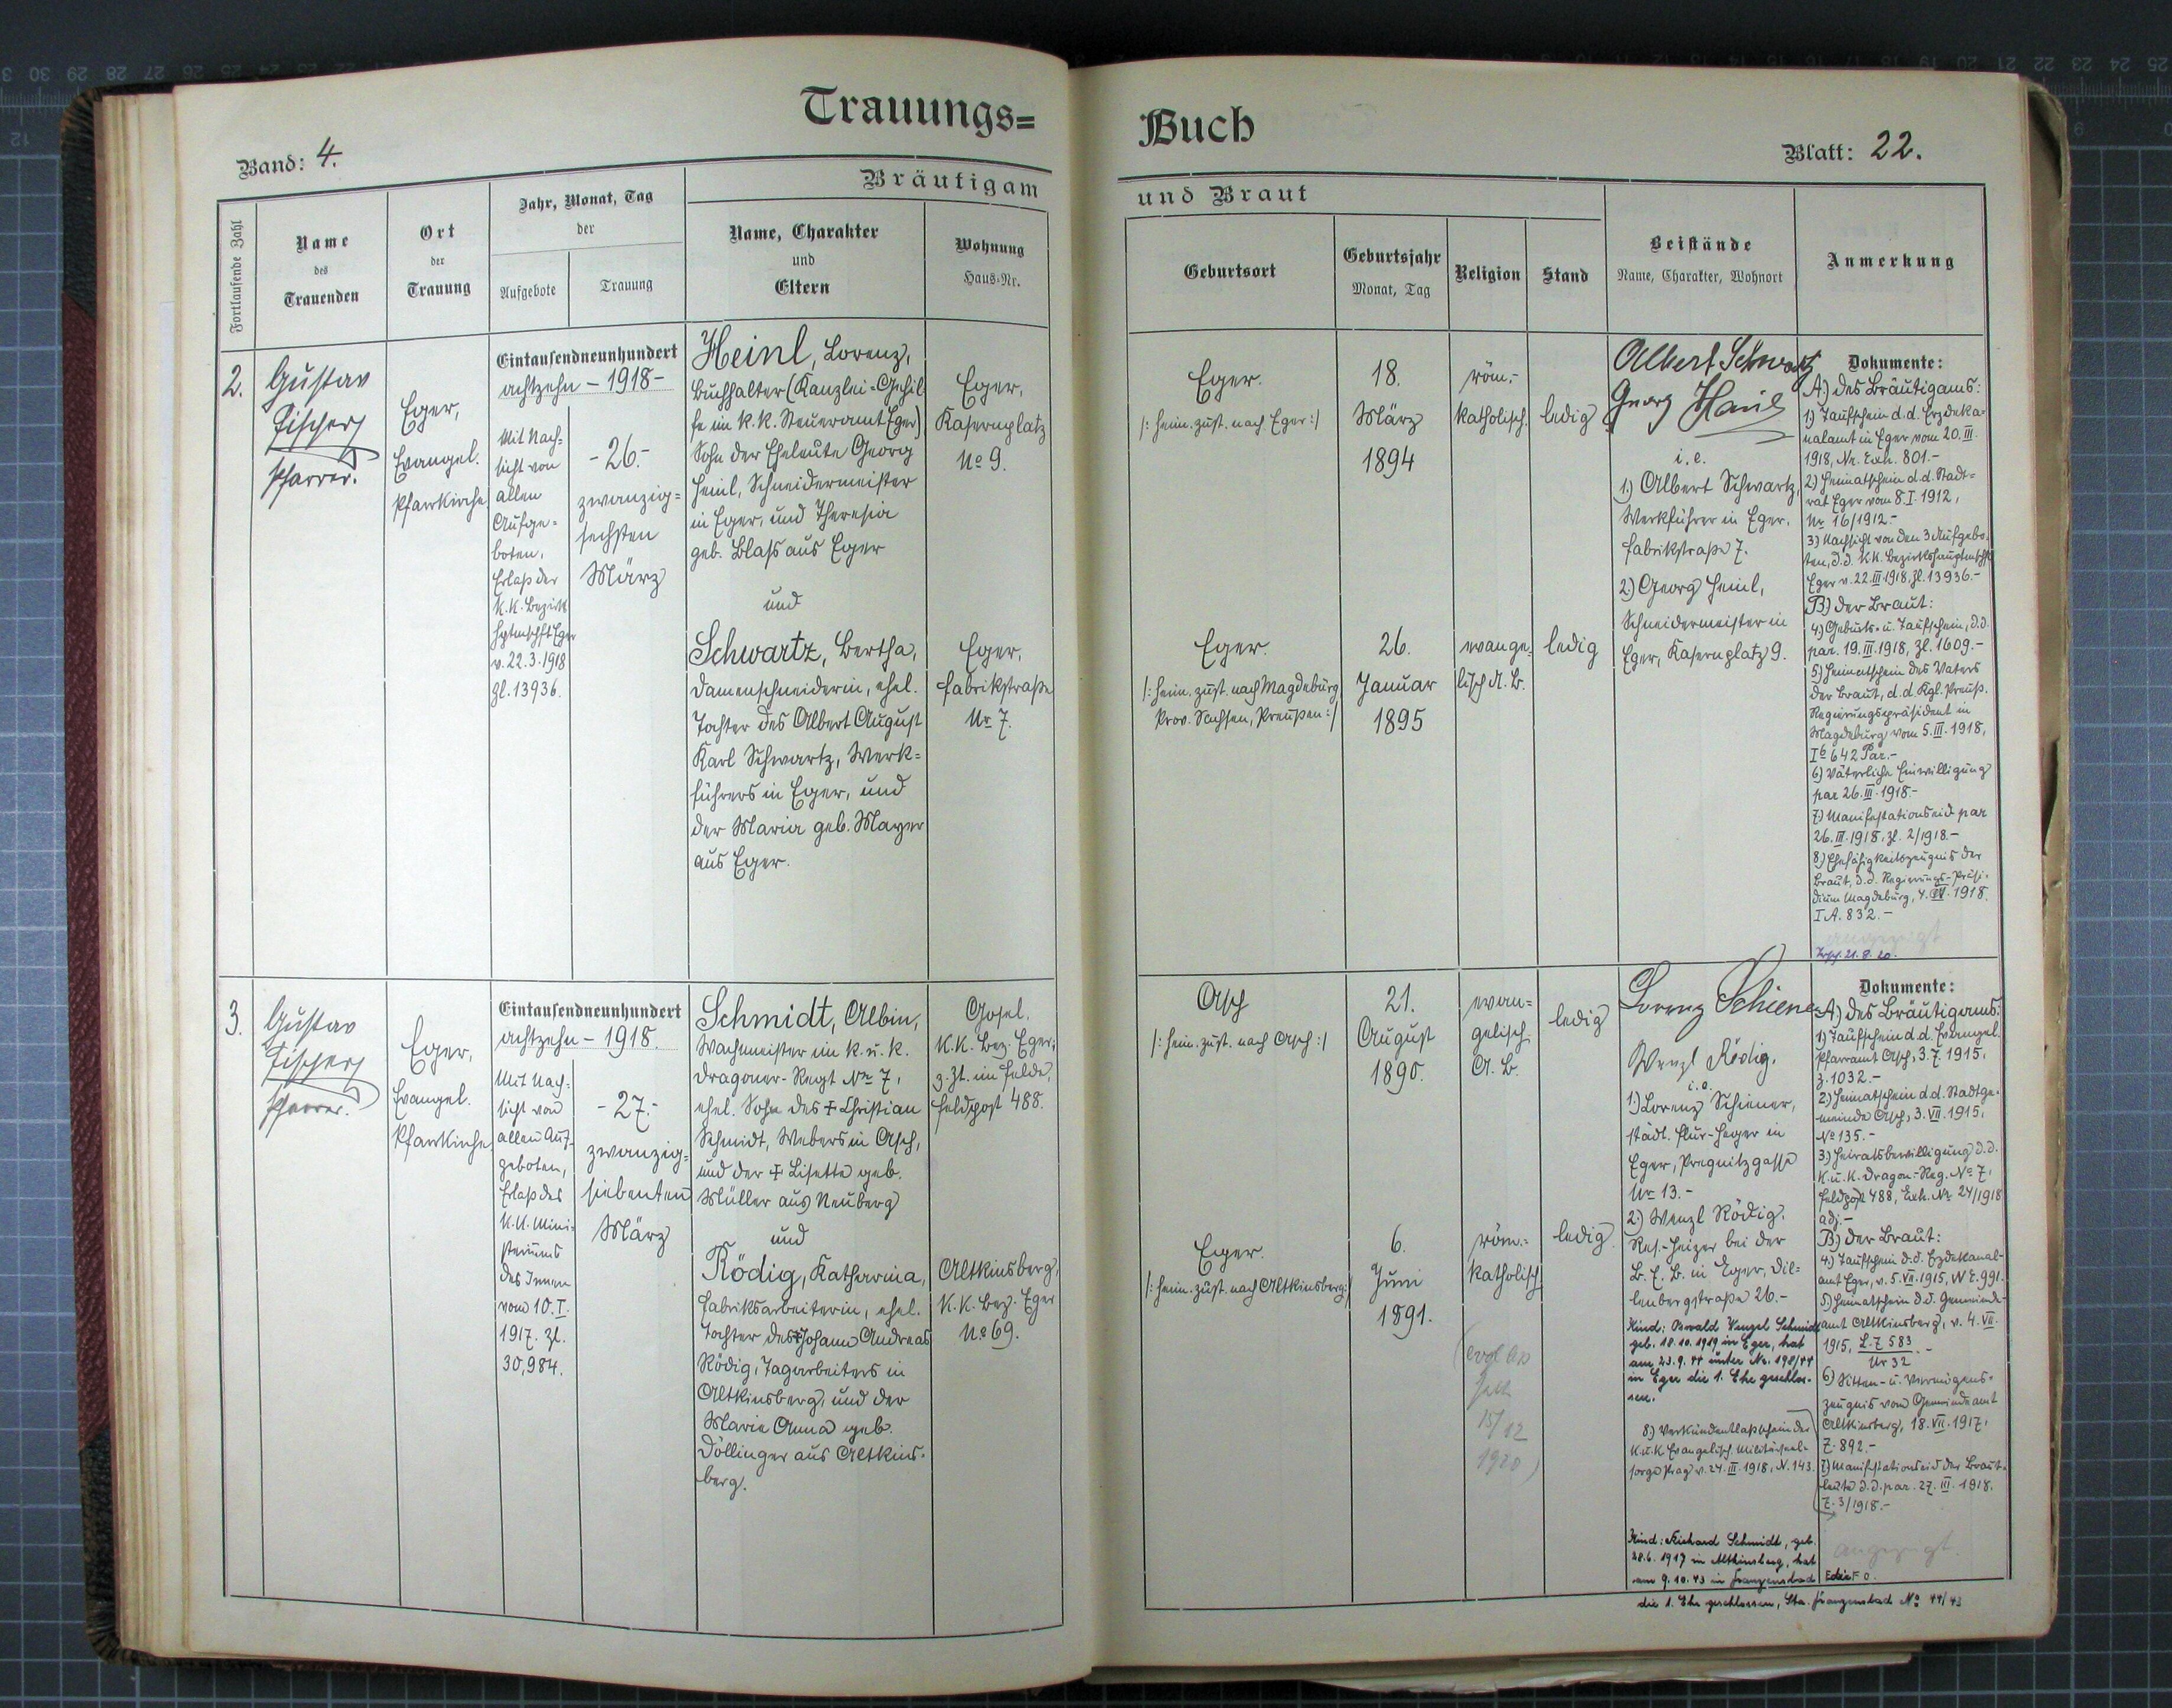 Trauungs=
Buch
Band: 4.
Blatt: 22.
Fortlaufende Zahl
Name
des
Trauenden
Ort
der
Trauung
Jahr, Monat, Tag
der
Aufgebote
Trauung
Bräutigam
und Braut
Name, Charakter
und
Eltern
Wohnung
Haus=Nr.
Geburtsort
Geburtsjahr
Monat, Tag
Religion
Stand
Beistände
Name, Charakter, Wohnort
Anmerkung
2.
Gustav
Fischer
Pfarrer.
Eger,
Evangel.
Pfarrkirche
Eintausendneunhundert
achtzehn – 1918 –
Mit Nach=
sicht von
allen
Aufge=
boten,
Erlaß der
k.k. Bezirks
hptmschft Eger
v. 22.3.1918
Zl. 13936.
- 26. -
zwanzig=
sechsten
März
Heinl, Lorenz,
Buchhalter (Kanzlei=Gehil
fe im k.k. Steueramt Eger)
Sohn der Eheleute Georg
Heinl, Schneidermeister
in Eger, und Theresia
geb. Blaß aus Eger
und
Schwartz, Bertha,
Damenschneiderin, ehel.
Tochter des Albert August
Karl Schwartz, Werk=
führers in Eger, und
der Maria geb. Mayer
aus Eger.
Eger,
Kasernplatz
No 9.
Eger,
Fabrikstraße
Nr. 7.
Eger.
/: heim. zust. nach Eger :/
18.
März
1894
röm.-
katholisch.
ledig
Eger.
/: heim. zust. nach Magdeburg
Prov. Sachsen, Preußen :/
26.
Januar
1895
evange=
lisch A. B.
ledig
Albert Schwartz
Georg Heinl
i. e.
1.) Albert Schwartz,
Werkführer in Eger.
Fabrikstraße 7.
2.) Georg Heinl,
Schneidermeister in
Eger, Kasernplatz 9.
Dokumente:
A.) des Bräutigams:
1.) Taufschein d. d. Erzdeka=
nalamt in Eger vom 20. III.
1918, Nr. Exh. 801. -
2.) Heimatschein d. d. Stadt=
rat Eger vom 8. I. 1912,
Nr. 16/1912. -
3.) Nachsicht von den 3 Aufgebo=
ten, d. d. k.k. Bezirkshauptmschft
Eger v. 22. III 1918, Zl. 13936. -
B.) der Braut:
4.) Geburts- u. Taufschein, d. d.
par. 19. III. 1918, Zl. 1609. -
5.) Heimatschein des Vaters
der Braut, d. d. Kgl. Preuß.
Regierungspräsident in
Magdeburg vom 5. III. 1918,
642 Par. -
6.) Väterliche Einwilligung
par 26. III. 1918. -
7.) Manifestationseid par
26. III. 1918, Zl. 2/1918. -
8.) Ehefähigkeitszeugnis der
Braut, d. d. Regierungs-Präsi=
dium Magdeburg, 4. IV. 1918.
I A. 832. -
angezeigt
21. 8. 20.
3.
Gustav
Fischer
Pfarrer.
Eger,
Evangel.
Pfarrkirche
Eintausendneunhundert
achtzehn – 1918.
Mit Nach=
sicht von
allen Auf=
geboten,
Erlaß des
k.k. Mini=
steriums
des Innern
vom 10. I.
1917. Zl.
30,984.
- 27. -
zwanzig=
siebenten
März
Schmidt, Albin,
Wachmeister im k. u. k.
Dragoner-Regt No 7,
ehel. Sohn des ‡ Christian
Schmidt, Webers in Asch,
und der ‡ Lisette geb.
Müller aus Neuberg
und
Rödig, Katharina,
Fabriksarbeiterin, ehel.
Tochter des ‡ Johann Andreas
Rödig, Tagarbeiters in
Altkinsberg, und der
Marie Anna geb.
Döllinger aus Altkins=
berg.
Gosel.
k.k. Bez. Eger,
z. Zt. im Felde,
Feldpost 488.
Altkinsberg,
k.k. Bez. Eger
No 69.
Asch
/: heim. zust. nach Asch :/
21.
August
1890.
evan=
gelisch
A. B.
ledig
Eger.
/: heim. zust. nach Altkinsberg :/
6.
Juni
1891.
röm.=
katholisch
ledig
15/12
1920)
Lorenz Schiener
Wenzl Rödig.
i. e.
1.) Lorenz Schiener,
städt. Flur-Heger in
Eger, Pregnitzgasse
Nr. 13. -
2.) Wenzl Rödig.
Res.-Heizer bei der
B. E. B. in Eger, Dil=
lenbergstraße 26. -
Kind: Oswald Wenzel Schmidt
geb. 18.10.1919 in Eger, hat
am 23.9.44 unter No. 198/44
in Eger die 1. Ehe geschlos-
sen.
8.) Verkündentlaßschein der
k. u. k. Evangelisch. Militärseel=
sorge Prag v. 24. III. 1918, N. 143.
Kind: Richard Schmidt, geb.
28.6.1917 in Altkinsberg, hat
am 9.10.43 in Franzensbad
die 1. Ehe geschlossen, Sta. Franzensbad No 44/43
Dokumente:
A.) des Bräutigams:
1.) Taufschein d. d. Evangel.
Pfarramt Asch, 3. 7. 1915,
Z. 1032. -
2.) Heimatschein d. d. Stadtge=
meinde Asch, 3. VII. 1915,
No 135. -
3.) Heiratsbewilligung d. d.
k. u. k. Dragon.-Reg. No 7,
Feldpost 488, Exh. No 24/1918
adj. -
B.) der Braut:
4.) Taufschein d. d. Erzdekanal=
amt Eger, v. 5. VII. 1915, W. E. 991.
5.) Heimatschein d. d. Gemeinde=
amt Altkinsberg, v. 4. VII.
1915, L. Z 583 . -
Nr 32
6.) Sitten- u. Vermögens=
zeugnis vom Gemeindeamt
Altkinsberg, 18. VII. 1917,
Z. 892. -
7.) Manifestationseid der Braut=
leute d. d. par. 27. III. 1918,
Z. 3/1918. -
angezeigt.